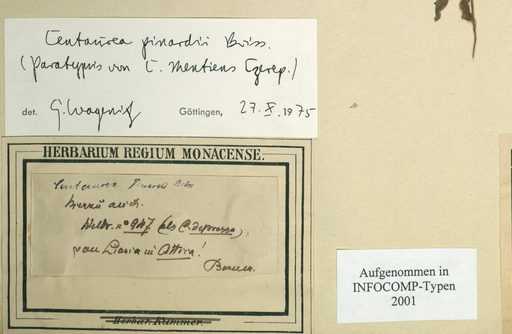 Centaurea pinardii Boiss.
(Paratypus von C. mentiens Czerep.)
det. G. Wagenitz Göttingen, 27. X. 1975
HERBARIUM REGIUM MONACENSE.
Centaurea Pinardi Boiss
Heldr. nº 947 (als C. depressa),
von Liaria in Attica!
Bornm.
Herbar. Kummer.
Aufgenommen in
INFOCOMP-Typen
2001